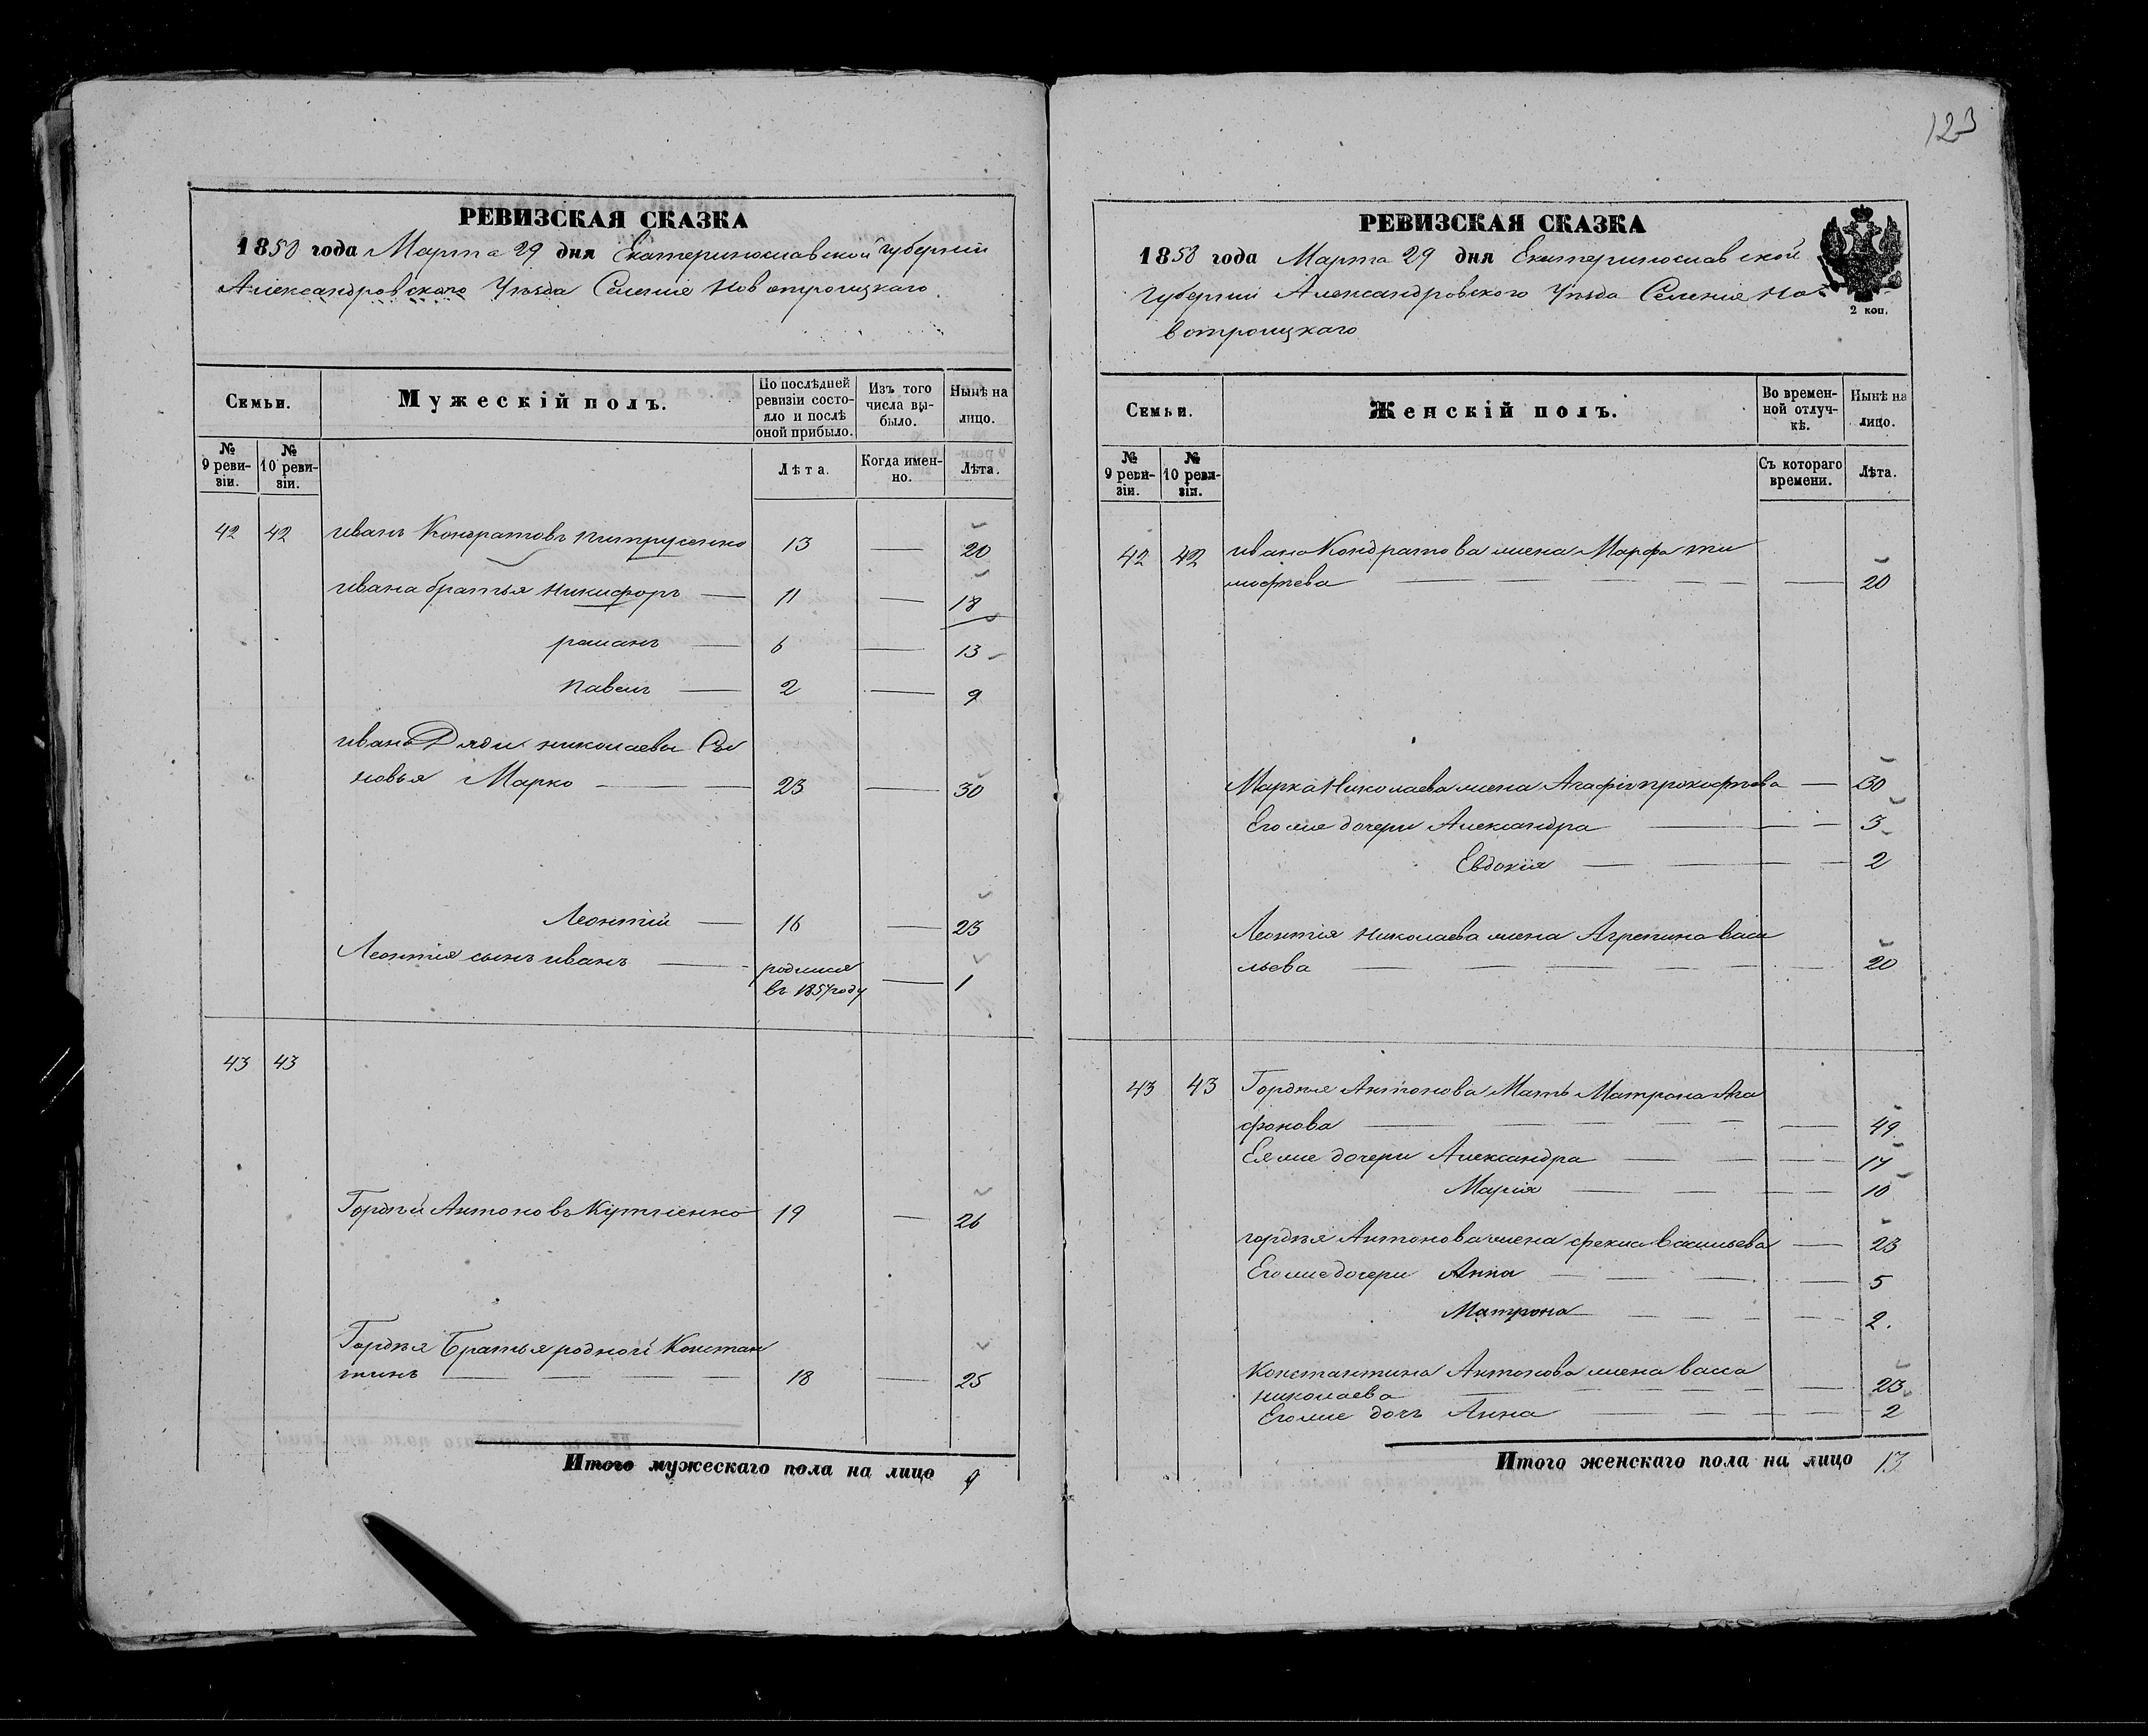 123
РЕВИЗСКАЯ СКАЗКА
1858 года Марта 29 дня Екатеринославской Губерніи
Александровскаго Уѣзда Селенiе Новотроицкаго
Семьи.
Мужескій полъ.
По послѣдней ревизіи состояло и послѣ оной прибыло.
Изъ того числа выбыло.
Нынѣ на лицо.
№ 9 ревизіи.
№ 10 ревизіи.
Лѣта.
Когда именно.
Лѣта.
42 42 иванъ Кондратовъ питрусенко 13 — 20
ивана братья Никифоръ — 11 — 18
романъ — 6 — 13
павелъ — 2 — 9
иванъ Дяди николаевы Сы
новья Марко — 23 — 30
Леонтій — 16 — 23
Леонтія сынъ иванъ — родился
въ 1857 году — 1
43 43
Гордѣй Антоновъ 19 — 26
Гордѣя Братья родной Констан
тинъ — 18 — 25
Итого мужескаго пола на лицо 9
РЕВИЗСКАЯ СКАЗКА
1858 года Марта 29 дня Екатеринославской
Губерніи Александровского Уѣзда Селеніе Но
вотроицкаго
2 коп.
Семьи.
Женскій полъ.
Во временной отлучкѣ.
Нынѣ на лицо.
№ 9 ревизіи.
№ 10 ревизіи.
Съ котораго времени.
Лѣта.
42 42 ивана Кондратова жена Марфа ти
мофѣева — 20
Марка Николаева жена Агафія прокофѣева — 30
Его же дочери Александра — 3
Евдокія — 2
Леонтія николаева жена Агрепина васи
льева — 20
43 43 Гордѣя Антонова Мать Матрона Ага
фонова — 49
Ея же дочери Александра — 17
Марія — 10
гордѣя Антонова жена фекла васильева — 23
Его же дочери Анна — 5
Матрона — 2.
Константина Антонова жена васса
николаева — 23
Его же доч Анна — 2
Итого женскаго пола на лицо 13